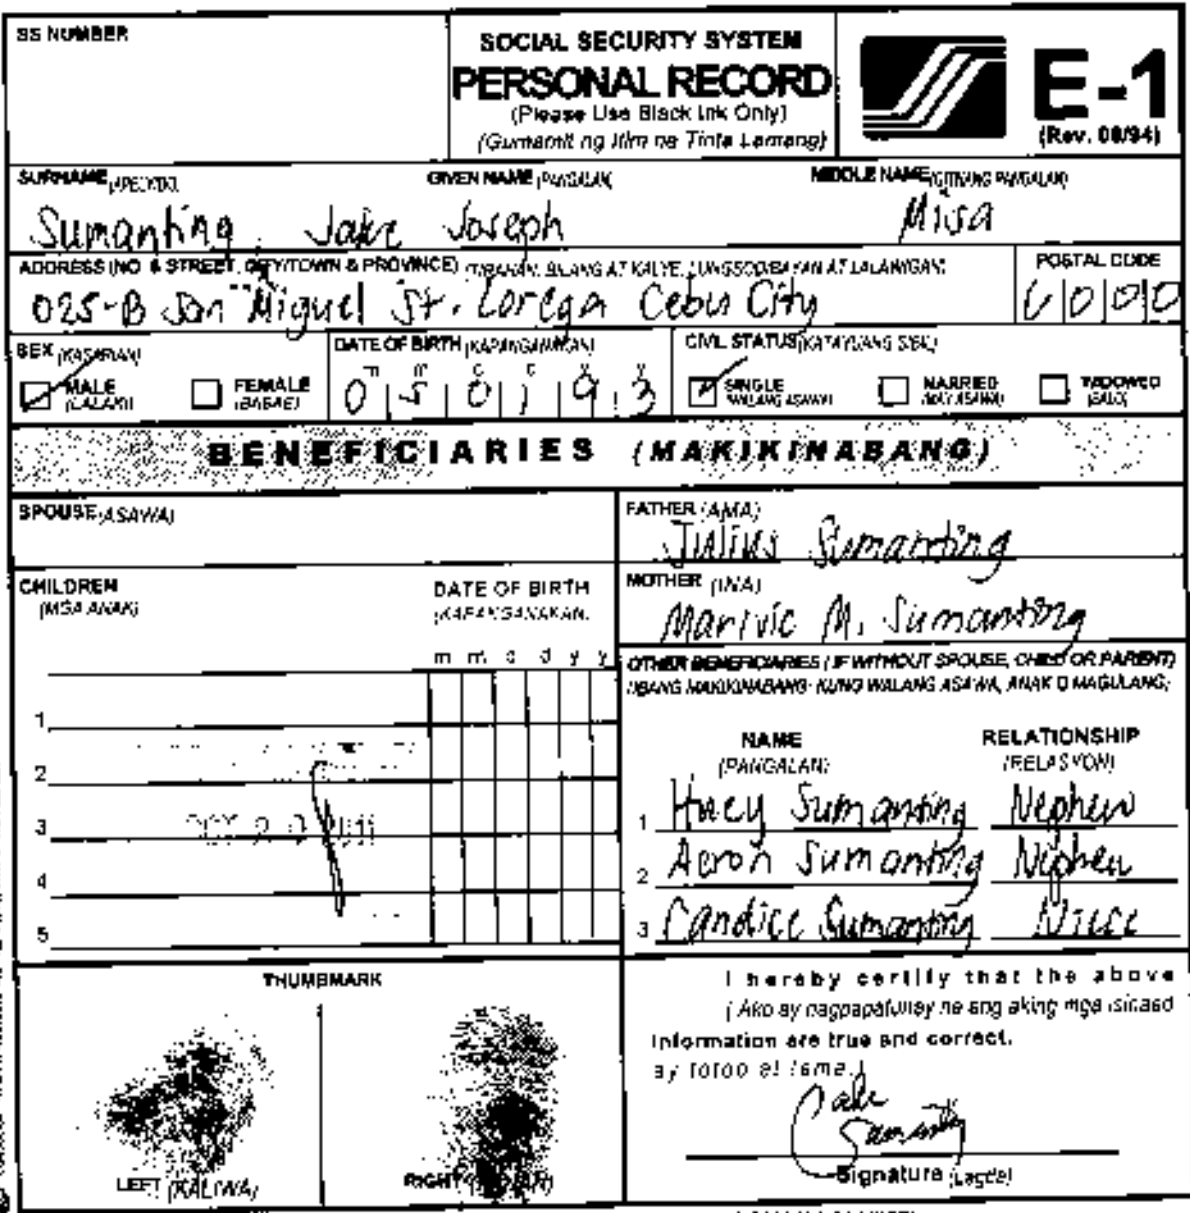 SS NUMBER
SOCIAL SECURITY SYSTEM
PERSONAL RECORD
(Please Use Black Ink Only)
(Gumamit ng Itim na Tinta Lamang)
E-1
(Rev. 08/94)
SURNAME (APELYIDO) GIVEN NAME (PANGALAN) MIDDLE NAME (GITNANG PANGALAN)
Sumanting, Jake Joseph Misa
ADDRESS (NO. & STREET, CITY/TOWN & PROVINCE) (TIRAHAN, BILANG AT KALYE, LUNGSOD/BAYAN AT LALAWIGAN) POSTAL CODE
025-B San Miguel St. Lorega Cebu City 6000
SEX (KASARIAN) DATE OF BIRTH (KAPANGANAKAN) CIVIL STATUS (KATAYUANG SIBIL)
MALE (LALAKI) FEMALE (BABAE) 050193 SINGLE (WALANG ASAWA) MARRIED (MAY ASAWA) WIDOWED (BALO)
BENEFICIARIES (MAKIKINABANG)
SPOUSE (ASAWA)
FATHER (AMA)
Julius Sumanting
MOTHER (INA)
Marivic M. Sumanting
CHILDREN DATE OF BIRTH
(MGA ANAK) (KAPANGANAKAN)
m m d d y y
1
2
3
4
5
OTHER BENEFICIARIES (IF WITHOUT SPOUSE, CHILD OR PARENT)
(IBANG MAKIKINABANG KUNG WALANG ASAWA, ANAK O MAGULANG)
NAME RELATIONSHIP
(PANGALAN) (RELASYON)
1 Huey Sumanting Nephew
2 Aeron Sumanting Nephew
3 Candice Sumanting Niece
THUMBMARK
LEFT (KALIWA) RIGHT
I hereby certify that the above
(Ako ay nagpapatunay na ang aking mga isinaad
information are true and correct.
ay totoo at tama.)
Jake Sumanting
Signature (Lagda)